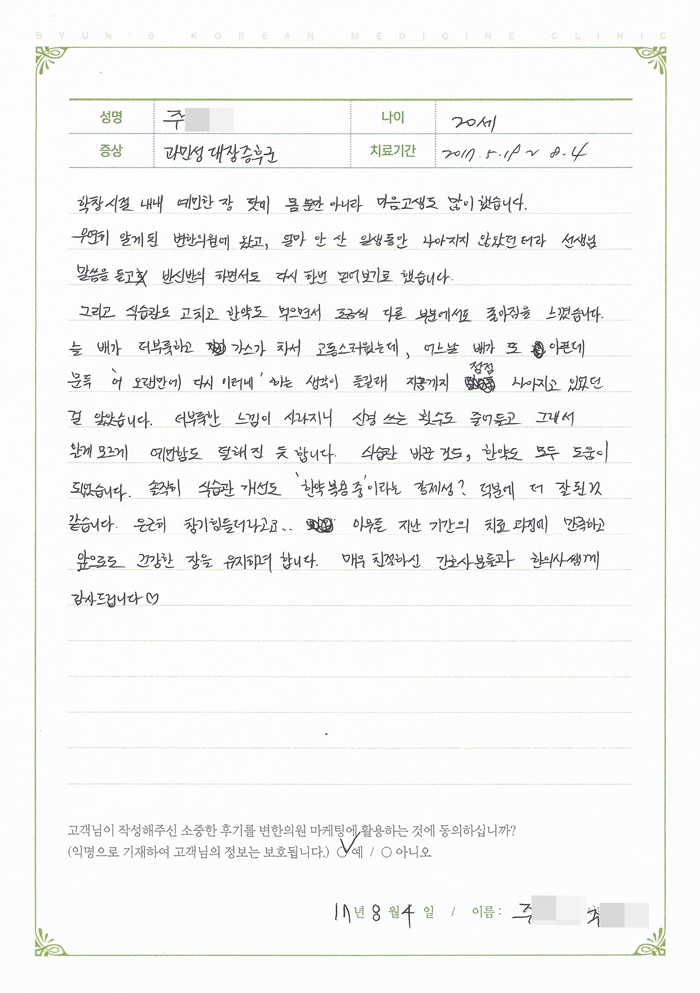 BYUN'S KOREAN MEDICINE CLINIC
성명 주 나이 20세
증상 과민성 대장증후군 치료기간 2017. 5. 19 ~ 8. 4
학창시절 내내 예민한 장 탓에 몸 뿐만 아니라 마음고생도 많이 했습니다.
우연히 알게 된 변한의원에 왔고, 얼마 안 산 일생동안 나아지지 않았던 터라 선생님
말씀을 듣고 반신반의 하면서도 다시 한번 믿어보기로 했습니다.
그리고 식습관도 고치고 한약도 먹으면서 조금씩 다른 부분에서도 좋아짐을 느꼈습니다.
늘 배가 더부룩하고 가스가 차서 고통스러웠는데, 어느날 배가 또 아픈데
문득 '어 오랜만에 다시 이러네' 하는 생각이 들길래 지금까지 점점 나아지고 있었던
걸 알았습니다. 더부룩한 느낌이 사라지니 신경 쓰는 횟수도 줄어들고 그래서
왠지 모르게 예민함도 덜해진 듯 합니다. 식습관 바꾼 것도, 한약도 모두 도움이
되었습니다. 솔직히 식습관 개선도 '한약 복용 중'이라는 강제성? 덕분에 더 잘 된 것
같습니다. 은근히 참기힘들더라고요.. 아무튼 지난 기간의 치료 과정에 만족하고
앞으로도 건강한 장을 유지하려 합니다. 매우 친절하신 간호사분들과 한의사쌤께
감사드립니다♡
고객님이 작성해주신 소중한 후기를 변한의원 마케팅에 활용하는 것에 동의하십니까?
(익명으로 기재하여 고객님의 정보는 보호됩니다.) ○ 예 / ○ 아니오
17년 8월 4일 / 이름 : 주 주